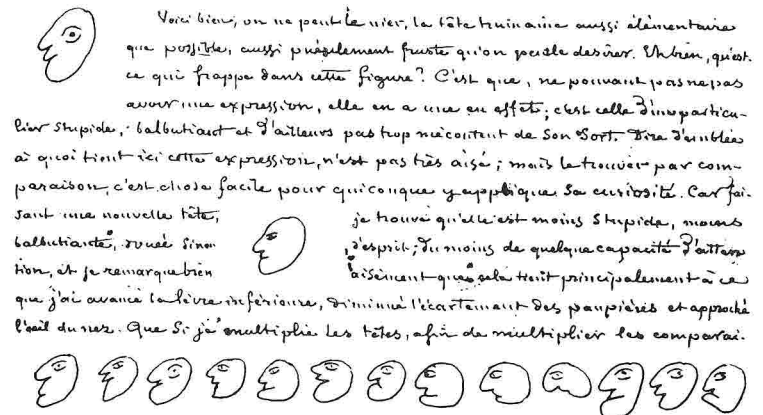 Voici bien, on ne peut le nier, la tête humaine aussi élémentaire
que possible, aussi puérilement fruste qu'on puisse desirer. Eh bien, qu'est-
ce qui frappe dans cette figure? C'est que, ne pouvant pas ne pas
avoir une expression, elle en a une en effet; c'est celle d'un particu-
lier stupide, balbutiant et d'ailleurs pas trop mécontent de son sort. Dire d'emblée
à quoi tient ici cette expression, n'est pas très aisé; mais le trouver par com-
paraison, c'est chose facile pour quiconque y applique sa curiosité. Car fai-
sant une nouvelle tête, je trouve qu'elle est moins stupide, moins
balbutiante, douée sinon d'esprit, du moins de quelque capacité d'atten
tion, et je remarque bien aisément que cela tient principalement à ce
que j'ai avancé la lèvre inférieure, diminué l'écartement des paupières et approché
l'œil du nez. Que si je multiplie les têtes, afin de multiplier les comparai-